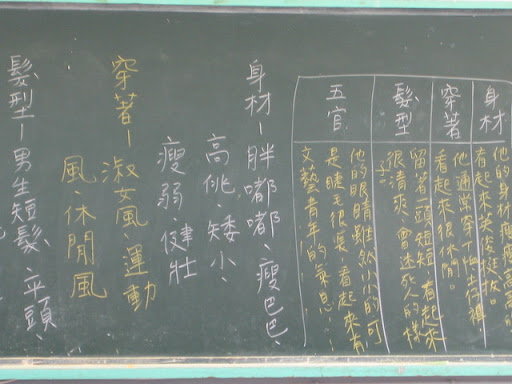 身材
他的身材瘦瘦高高的
看起來英姿挺拔。
穿著
他通常穿T恤牛仔褲,
看起來很休閒。
髮型
留著一頭短短,看起來
很清爽,會迷死人的樣
子。
五官
他的眼睛雖然小小的,可
是睫毛很長,看起來有
文藝青年的氣息
身材—胖嘟嘟、瘦巴巴、
高佻、矮小、
瘦弱、健壯
穿著—淑女風、運動
風、休閒風
髮型—男生短髮、平頭、